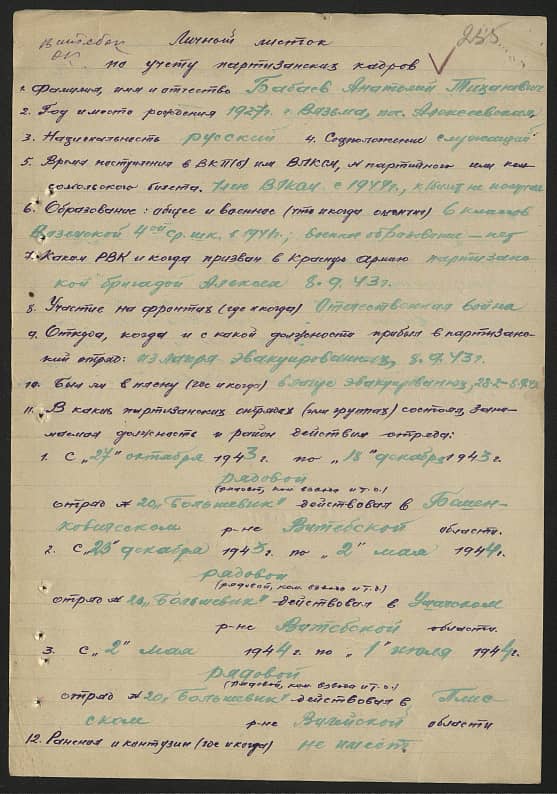 Витебск 255
ОК.
Личный листок
по учету партизанских кадров
1. Фамилия, имя и отчество Бабаев Анатолий
2. Год и место рождения 1927 г. г. Вязьма, пос. Алексеевский
3. Национальность русский 4. Соцположение служащий
5. Время поступления в ВКП(б) или ВЛКСМ, № партийного или ком-
сомольского билета. Член ВЛКСМ с 1944 г., к/билет не получал
6. Образование: общее и военное (что и когда окончил) 6 классов
Вяземской 4ой ср. шк. в 1941 г.; военное образование - нет
7. Каким РВК и когда призван в Красную Армию партизанс-
кой бригадой Алексея 8.9.43 г.
8. Участие на фронтах (где и когда) Отечественная война
9. Откуда, когда и с какой должности прибыл в партизанс-
кий отряд: из лагеря эвакуированных, 8.9.43 г.
10. Был ли в плену (где и когда) в лагере эвакуированных,
11. В каких партизанских отрядах (или группах) состоял, зани-
маемая должность и район действия отряда:
1. С "27" октября 1943 г. по "18" декабря 1943 г.
рядовой
(рядовой, ком. взвода и т.д.)
отряд № 20 "Большевик" действовал в Бешен-
ковичском р-не Витебской области.
2. С "23" декабря 1943 г. по "2" мая 1944 г.
рядовой
(рядовой, ком. взвода и т.д.)
отряд № 20 "Большевик" действовал в Ушачском
р-не Витебской области.
3. С "2" мая 1944 г. по "1" июля 1944 г.
рядовой
(рядовой, ком. взвода и т.д.)
отряд № 20 "Большевик" действовал в Плис-
ском р-не Вилейской области
12. Ранения и контузии (где и когда) не имеет